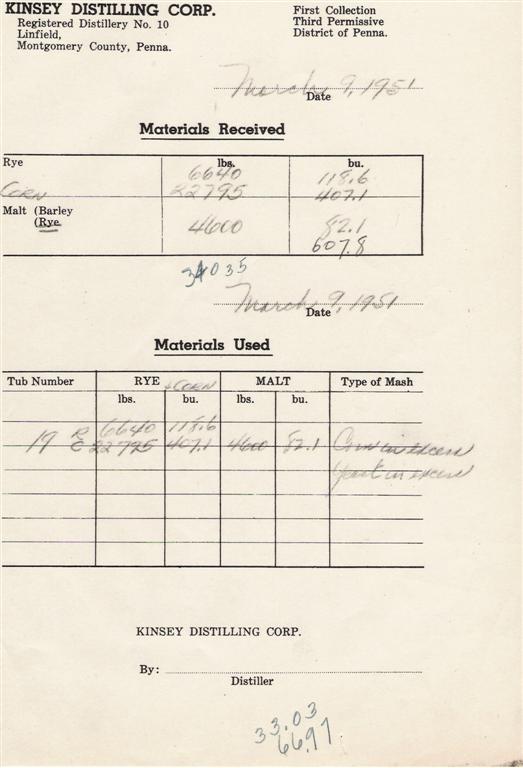 KINSEY DISTILLING CORP.
Registered Distillery No. 10
Linfield,
Montgomery County, Penna.
First Collection
Third Permissive
District of Penna.
March 9, 1951
Date
Materials Received
lbs. bu.
Rye 6640 118.6
CORN 22795 407.1
Malt (Barley
(Rye 4600 82.1
607.8
34035
March 9, 1951
Date
Materials Used
Tub Number RYE + CORN MALT Type of Mash
lbs. bu. lbs. bu.
R 6640 118.6
19 C 22795 407.1 4600 82.1 Corn in excess
in excess
KINSEY DISTILLING CORP.
By:
Distiller
33.03
66.97